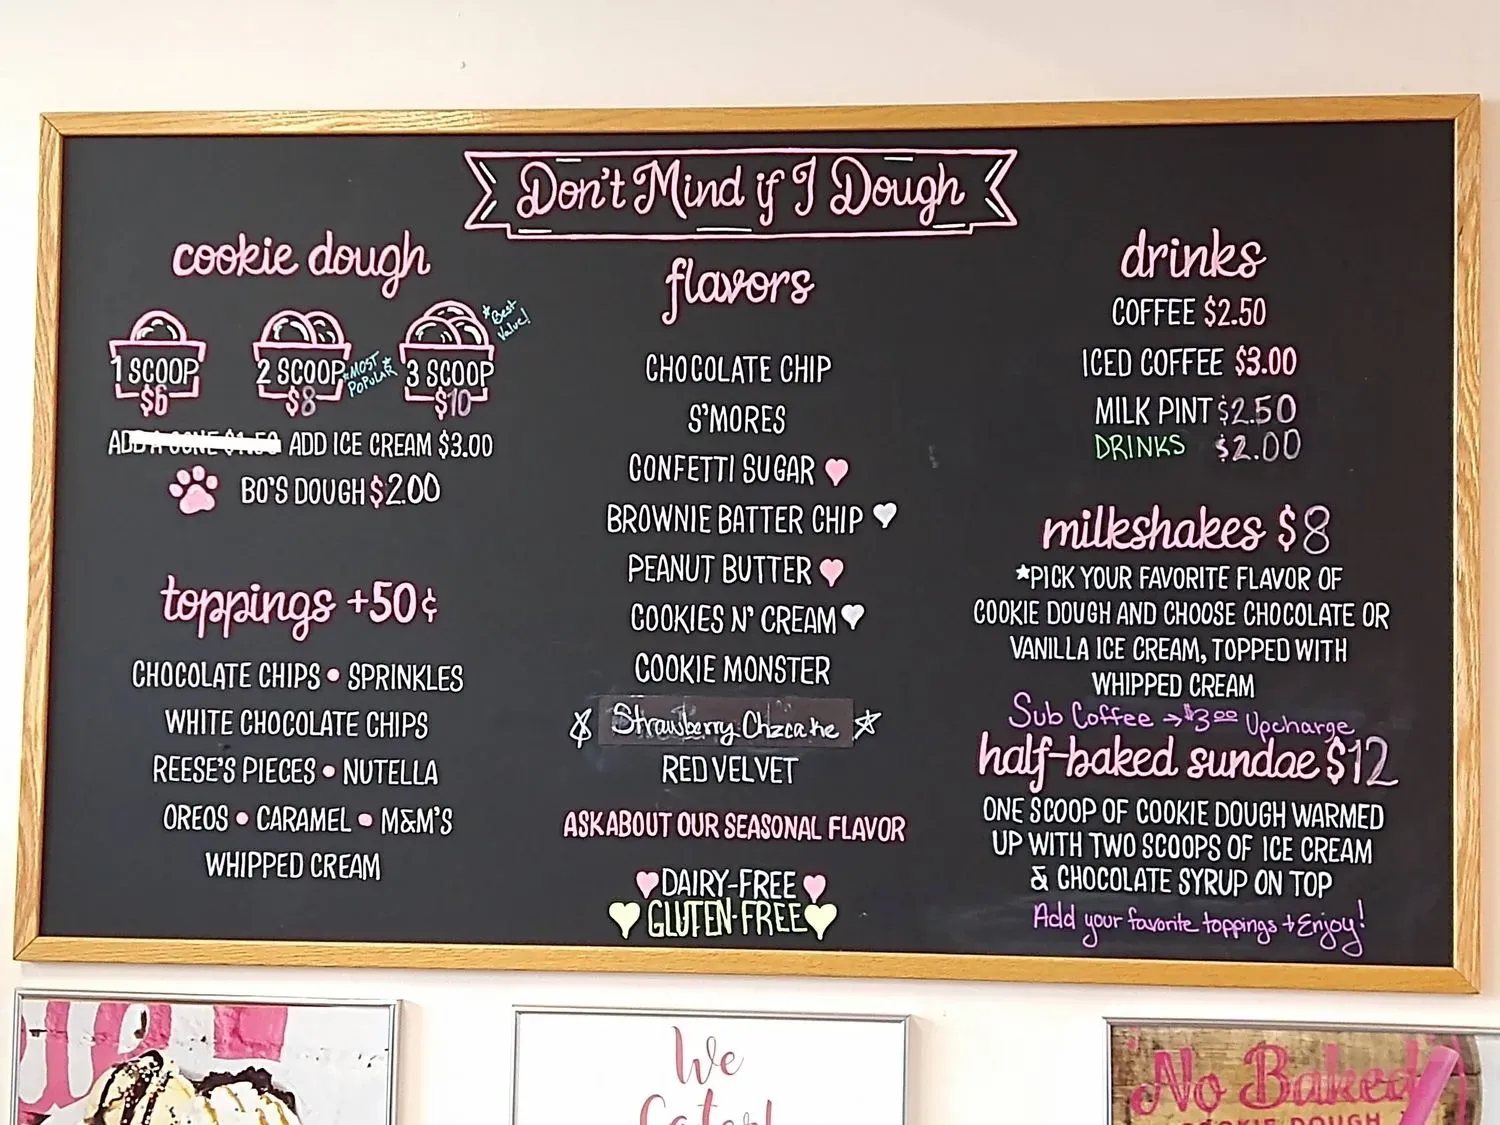 Don't Mind if I Dough
cookie dough
1 SCOOP
$6
2 SCOOP
$8
*MOST POPULAR*
3 SCOOP
$10
*Best Value!
ADD A CONE $1.50 ADD ICE CREAM $3.00
BO'S DOUGH $2.00
toppings +50¢
CHOCOLATE CHIPS • SPRINKLES
WHITE CHOCOLATE CHIPS
REESE'S PIECES • NUTELLA
OREOS • CARAMEL • M&M'S
WHIPPED CREAM
flavors
CHOCOLATE CHIP
S'MORES
CONFETTI SUGAR
BROWNIE BATTER CHIP
PEANUT BUTTER
COOKIES N' CREAM
COOKIE MONSTER
Strawberry Chzcake
RED VELVET
ASK ABOUT OUR SEASONAL FLAVOR
DAIRY-FREE
GLUTEN-FREE
drinks
COFFEE $2.50
ICED COFFEE $3.00
MILK PINT $2.50
DRINKS $2.00
milkshakes $8
*PICK YOUR FAVORITE FLAVOR OF
COOKIE DOUGH AND CHOOSE CHOCOLATE OR
VANILLA ICE CREAM, TOPPED WITH
WHIPPED CREAM
Sub Coffee → $3.00 Upcharge
half-baked sundae $12
ONE SCOOP OF COOKIE DOUGH WARMED
UP WITH TWO SCOOPS OF ICE CREAM
& CHOCOLATE SYRUP ON TOP
Add your favorite toppings + Enjoy!
We
Cater!
No Baked
COOKIE DOUGH